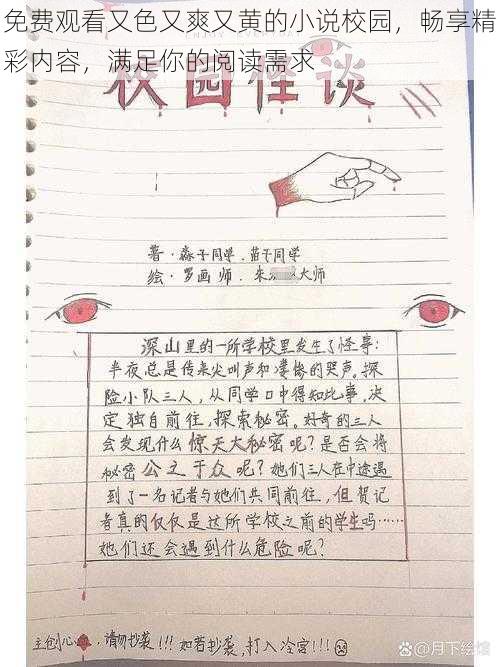 免费观看又色又爽又黄的小说校园，畅享精
彩内容，满足你的阅读需求
校园怪谈
著·淼子同学.苗子同学
绘·罗画师.朱大师
深山里的一所学校里发生了怪事：
半夜总是传来尖叫声和凄惨的哭声。探
险小队三人，从同学口中得知此事，决
定独自前往，探索秘密。好奇的三人
会发现什么惊天大秘密呢？是否会将
秘密公之于众呢？她们三人在中途遇
到了一名记者与她们共同前往，但贺记
者真的仅仅是这所学校之前的学生吗……
她们还会遇到什么危险呢？
主创心，请勿抄袭!!!如若抄袭,打入冷宫!!!
@月下绘馆